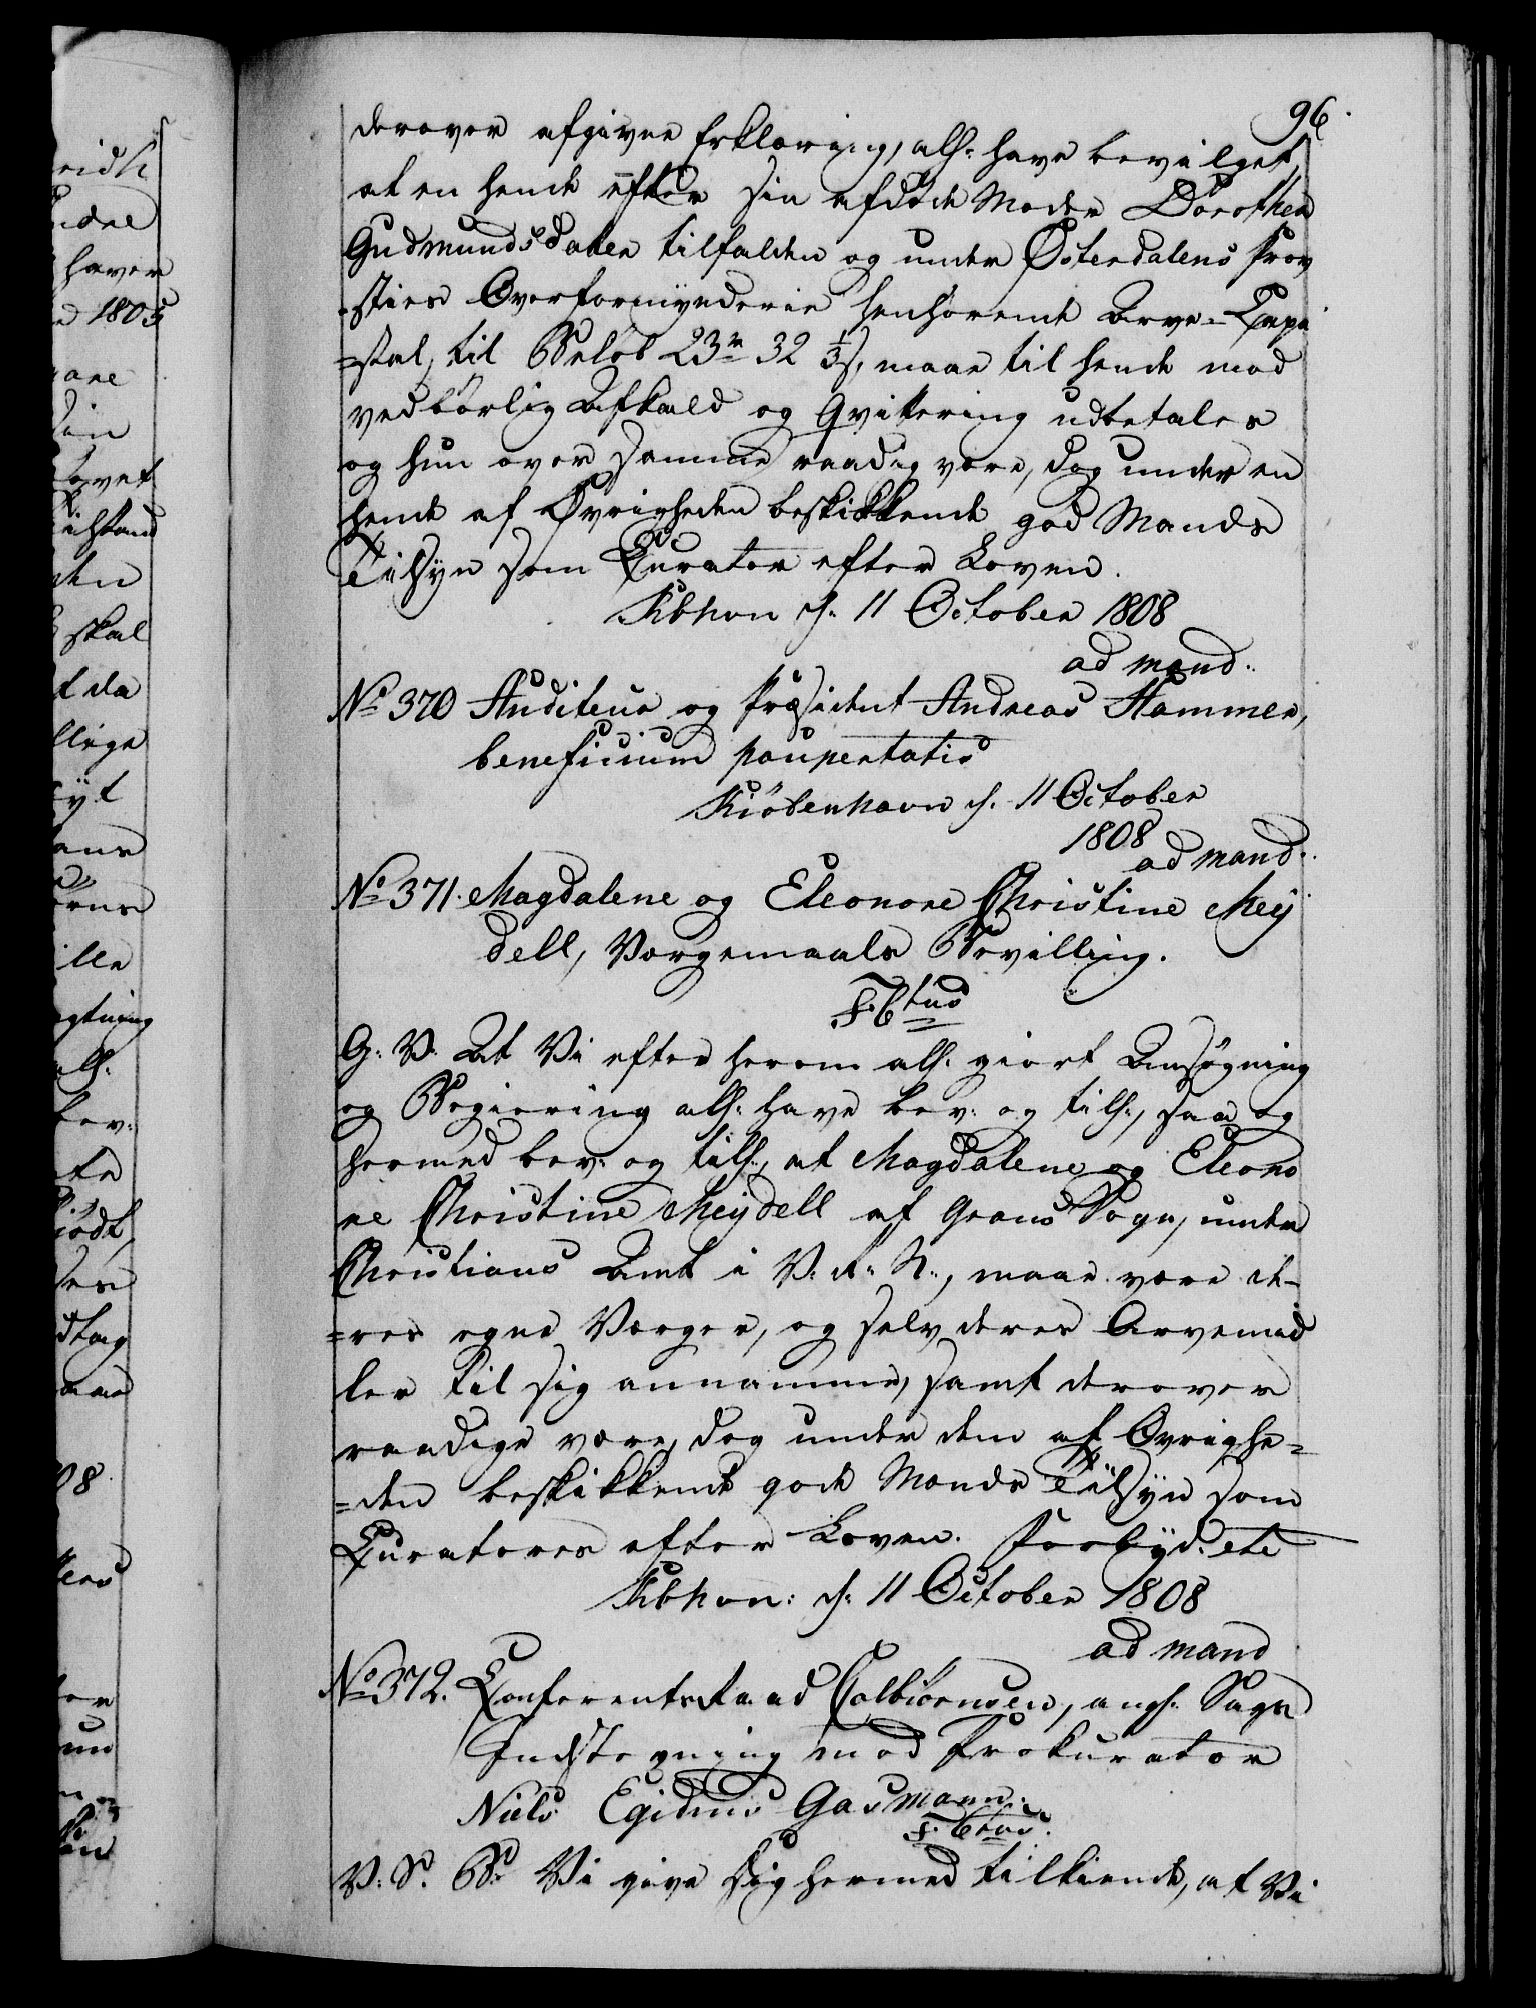 96.
derover afgivne Erklæring, alln: have bevilget,
at en hende efter sin afdøde Moder Dorothea
Gudmundsdatter tilfalden og under Østerdalens Prov
=sties Overformynderie henhørende Arve-Capi
=tal, til Beløb 23 rd 32 1/3 s, maae til hende mod
vedbørlig Afkald og Qvittering udbetales
og hun over samme raadig være, dog under en
hende af Øvrigheden beskikkende god Mands
Tilsyn som Curator efter Loven.
Kbhvn d: 11 October 1808
ad mand:
No 370 Auditeur og Præsident Andreas Hammer,
beneficium paupertatis
Kiøbenhavn d. 11 October
1808
ad mand:
No 371. Magdalene og Eleonore Christine Mey
dell, Værgemaals Bevilling.
F. Ctus
G: V: At Vi efter herom alln: giort Ansøgning
og Begiering alln: have bev: og till:, saa og
hermed bev: og till:, at Magdalene og Eleono
re Christine Meydell af Grans Sogn, under
Christians Amt i V: R: N:, maae være de-
=res egne Værger, og selv deres Arvemid
ler til sig annamme, samt derover
raadige være, dog under dem af Øvrighe=
=den beskikkende gode Mænds Tilsyn som
Curatores efter Loven. Forbyd: etc
Kbhvn: d: 11 October 1808
ad mand
No 372. Conferentsraad Colbiørnsen, ang: Sags
Indstevning mod Prokurator
Niels Egidius Gasmann.
F. Ctus.
V: S: B: Vi give Dig hermed tilkiende, at Vi